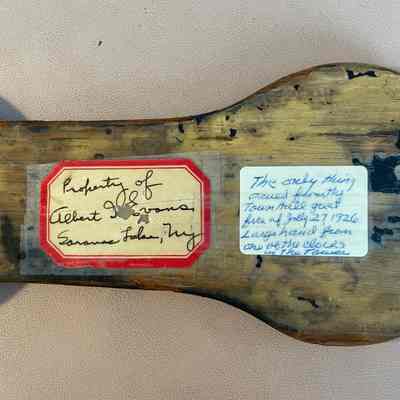 Property of
Albert I. Evans
Saranac Lake, Ny
The only thing
saved from the
Town Hall great
fire of July 27 1926
Large hand from
one of the clocks
in the Tower